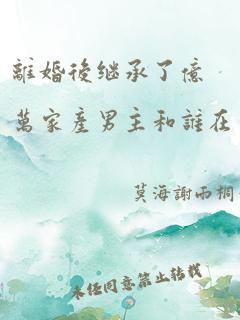 離婚後继承了億
萬家產男主和誰在
莫海謝雨桐
未经同意禁止转载